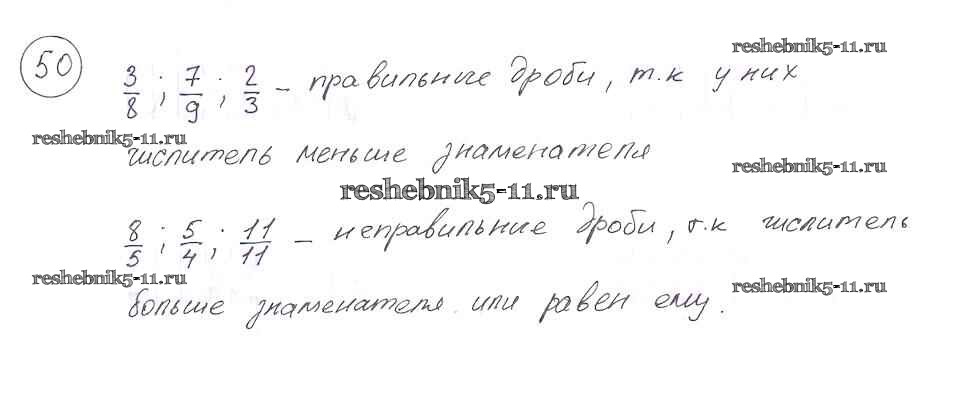 50
reshebnik5-11.ru
3/8 ; 7/9 ; 2/3 – правильние дроби, т.к у них
reshebnik5-11.ru
числитель меньше знаменателя
reshebnik5-11.ru
reshebnik5-11.ru
8/5 ; 5/4 ; 11/11 – неправильние дроби, т.к числитель
reshebnik5-11.ru
reshebnik5-11.ru
больше знаменателя или равен ему.